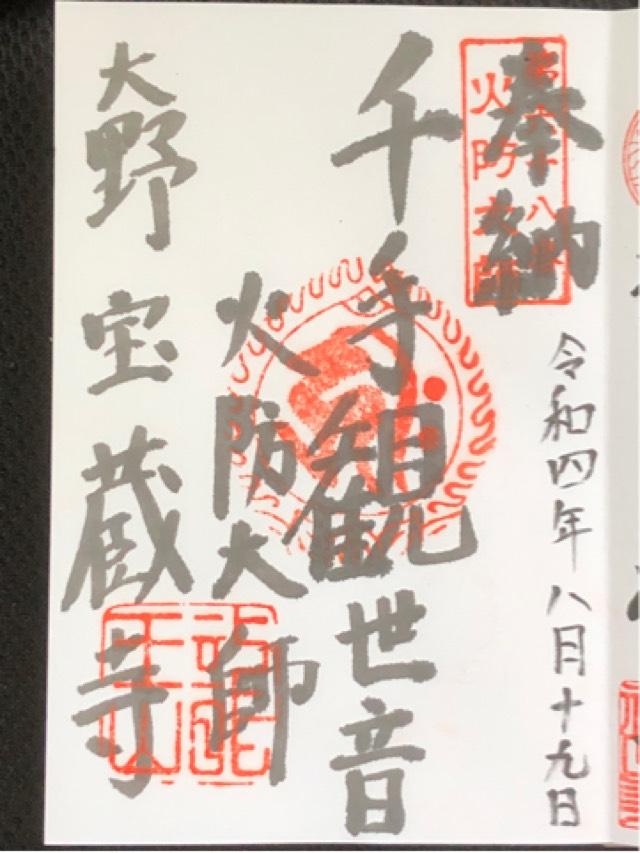 奉納
火防大師
令和四年八月十九日
千手観世音
火防大師
大野宝蔵寺